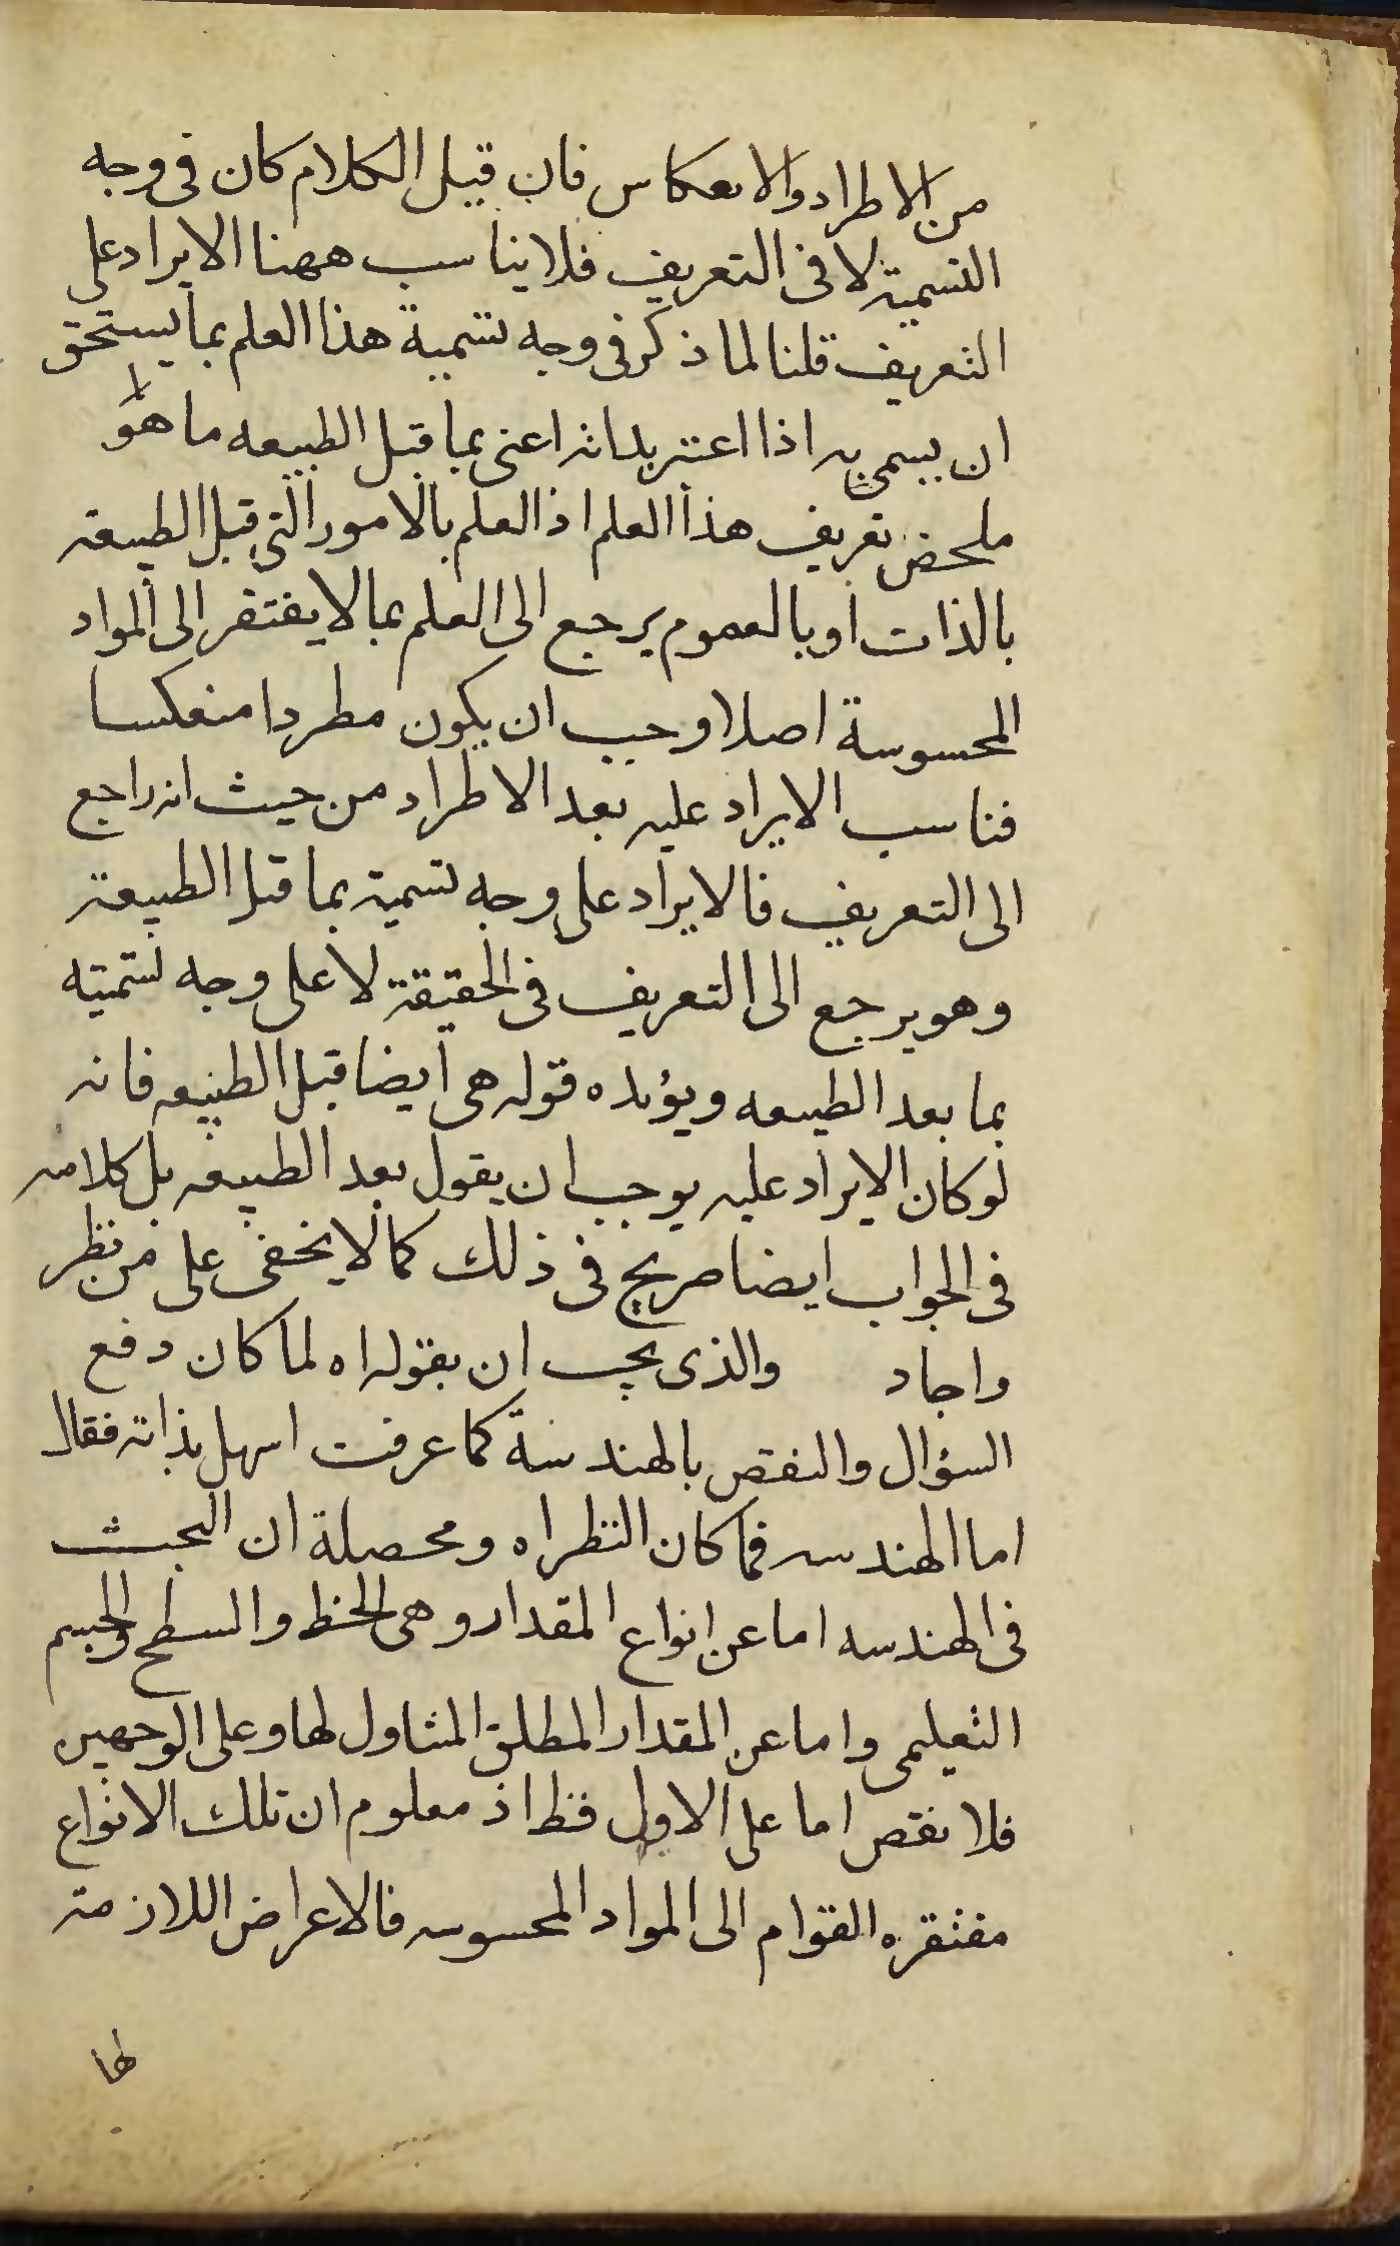 من الاطراد والانعكاس فان قيل الكلام كان فى وجه
التسمية لا فى التعريف فلا يناسب ههنا الايراد على
التعريف قلنا لما ذكر فى وجه تسمية هذا العلم بما يستحق
ان يسمى به اذا اعتبر بذاته اعنى بما قبل الطبيعه ما هو
ملخص تعريف هذا العلم اذ العلم بالامور التى قبل الطبيعة
بالذات او بالعموم يرجع الى العلم بما لا يفتقر الى المواد
المحسوسة اصلا وجب ان يكون مطردا منعكسا
فناسب الايراد عليه بعد الاطراد من حيث انه راجع
الى التعريف فالايراد على وجه تسمية بما قبل الطبيعة
وهو يرجع الى التعريف فى الحقيقة لا على وجه تسميته
بما بعد الطبيعه ويؤيده قوله هى ايضا قبل الطبيعه فانه
لو كان الايراد عليه يوجب ان يقول بعد الطبيعه بل كلامه
فى الجواب ايضا صريح فى ذلك كما لا يخفى على من نظر
واجاد والذى يجب ان بقوله اه لما كان دفع
السؤال والنقض بالهندسة كما عرفت اسهل بذاته فقال
اما الهندسه فما كان النظر اه ومحصلة ان البحث
فى الهندسه اما عن انواع المقدار وهى الخط والسطح والجسم
التعليمى واما عن المقدار المطلق المتناول لها وعلى الوجهين
فلا نقض اما على الاول فظ اذ معلوم ان تلك الانواع
مفتقره القوام الى المواد المحسوسه فالاعراض اللازمة
لها